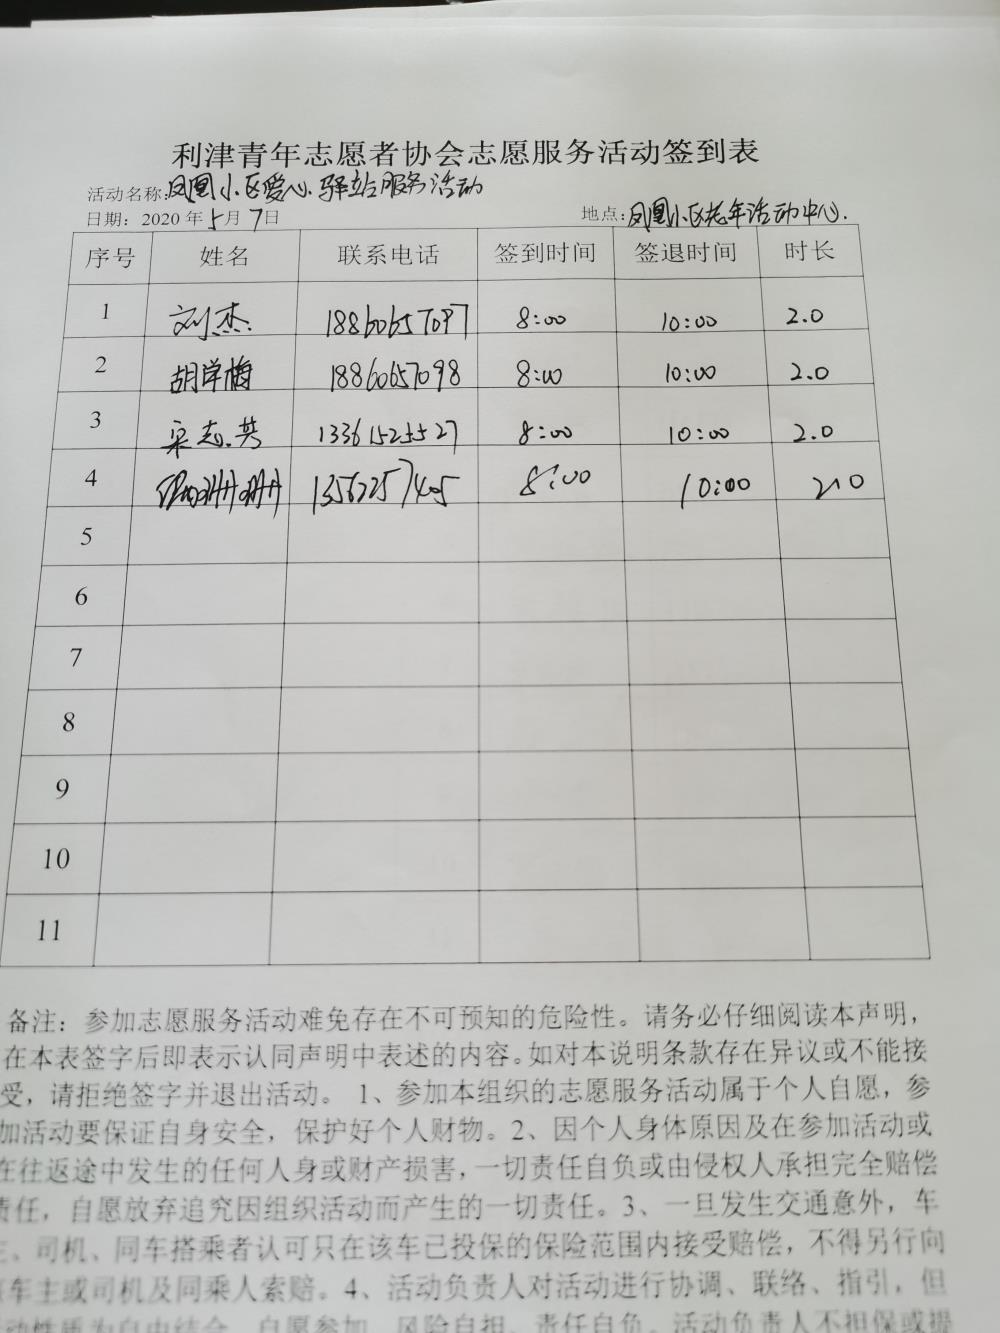 利津青年志愿者协会志愿服务活动签到表
活动名称:凤凰小区爱心驿站服务活动
日期：2020年5月7日 地点:凤凰小区老年活动中心.
序号 姓名 联系电话 签到时间 签退时间 时长
1 刘杰 18860657097 8:00 10:00 2.0
2 胡学梅 18860657098 8:00 10:00 2.0
3 志 13361525527 8:00 10:00 2.0
4 珊珊 13562257405 8:00 10:00 2.0
5
6
7
8
9
10
11
备注：参加志愿服务活动难免存在不可预知的危险性。请务必仔细阅读本声明，
在本表签字后即表示认同声明中表述的内容。如对本说明条款存在异议或不能接
受，请拒绝签字并退出活动。 1、参加本组织的志愿服务活动属于个人自愿，参
加活动要保证自身安全，保护好个人财物。2、因个人身体原因及在参加活动或
在往返途中发生的任何人身或财产损害，一切责任自负或由侵权人承担完全赔偿
责任，自愿放弃追究因组织活动而产生的一切责任。3、一旦发生交通意外，车
主、司机、同车搭乘者认可只在该车已投保的保险范围内接受赔偿，不得另行向
车主或司机及同乘人索赔。4、活动负责人对活动进行协调、联络、指引，但
动性质为自由结合，自愿参加，风险自担，责任自负。活动负责人不担保或提